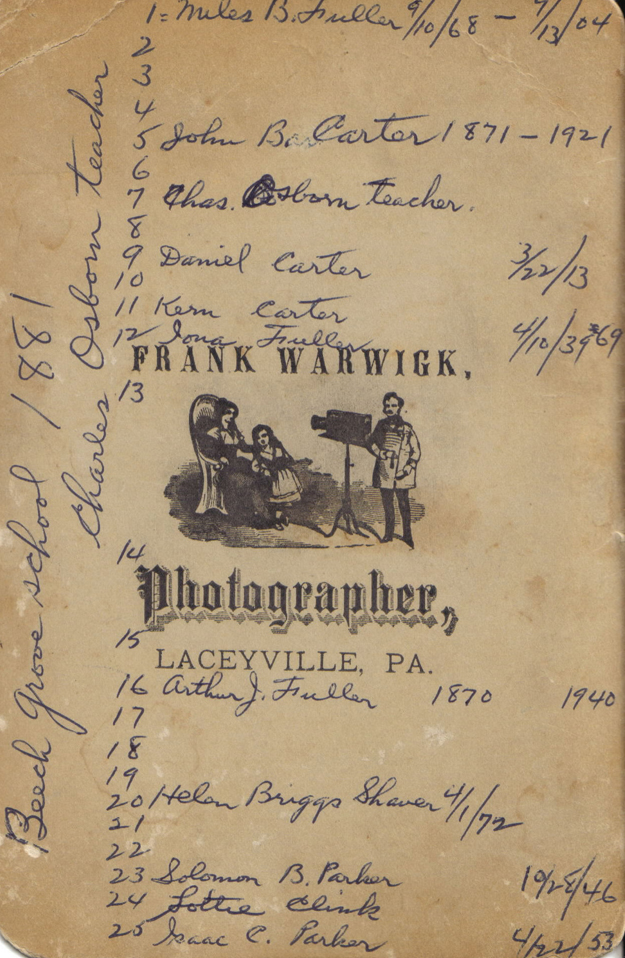 1= Miles B. Fuller 9/10/68 - 9/13/04
2
3
4
5 John Carter 1871 - 1921
6
7 Chas. Osborn teacher.
8
9 Daniel Carter 3/22/13
10
11 Kern Carter
12 Iona Fuller 4/10/39
FRANK WARWICK,
13
14
Photographer,
15
LACEYVILLE, PA.
16 Arthur J. Fuller 1870 1940
17
18
19
20 Helen Briggs Shaver 4/1/72
21
22
23 Solomon B. Parker
24 Lottie Clink
25 Isaac C. Parker 4/22/53
Beech Grove school 1881
Charles Osborn teacher